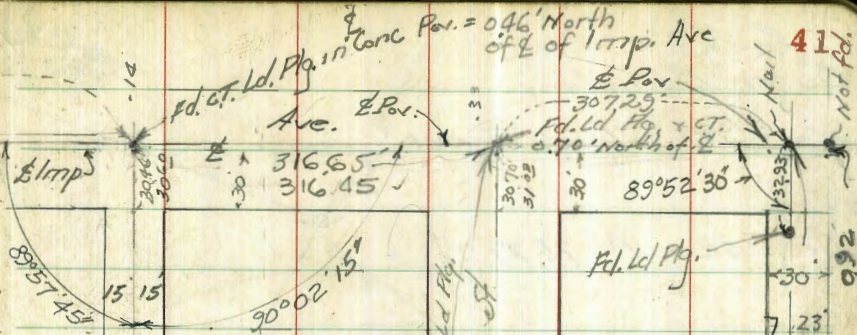 ℄
Fd. CT. Ld. Plg. in Conc Pav. = 0.46' North
of ℄ of Imp. Ave
41
-.14
Ave.
℄ Pav.
-.33
℄ Pav
307.29
Nail
Not fd.
Fd. Ld Plg. & CT.
0.70' North of ℄
℄ Imp
30.46
30.60
℄
30'
316.65'
316.45
30.70
31.03
30'
89°52'30"
32.93
Fd. Ld Plg.
89°57'45"
15' 15'
90°02'15"
Ld Plg.
30'
0.92
23'